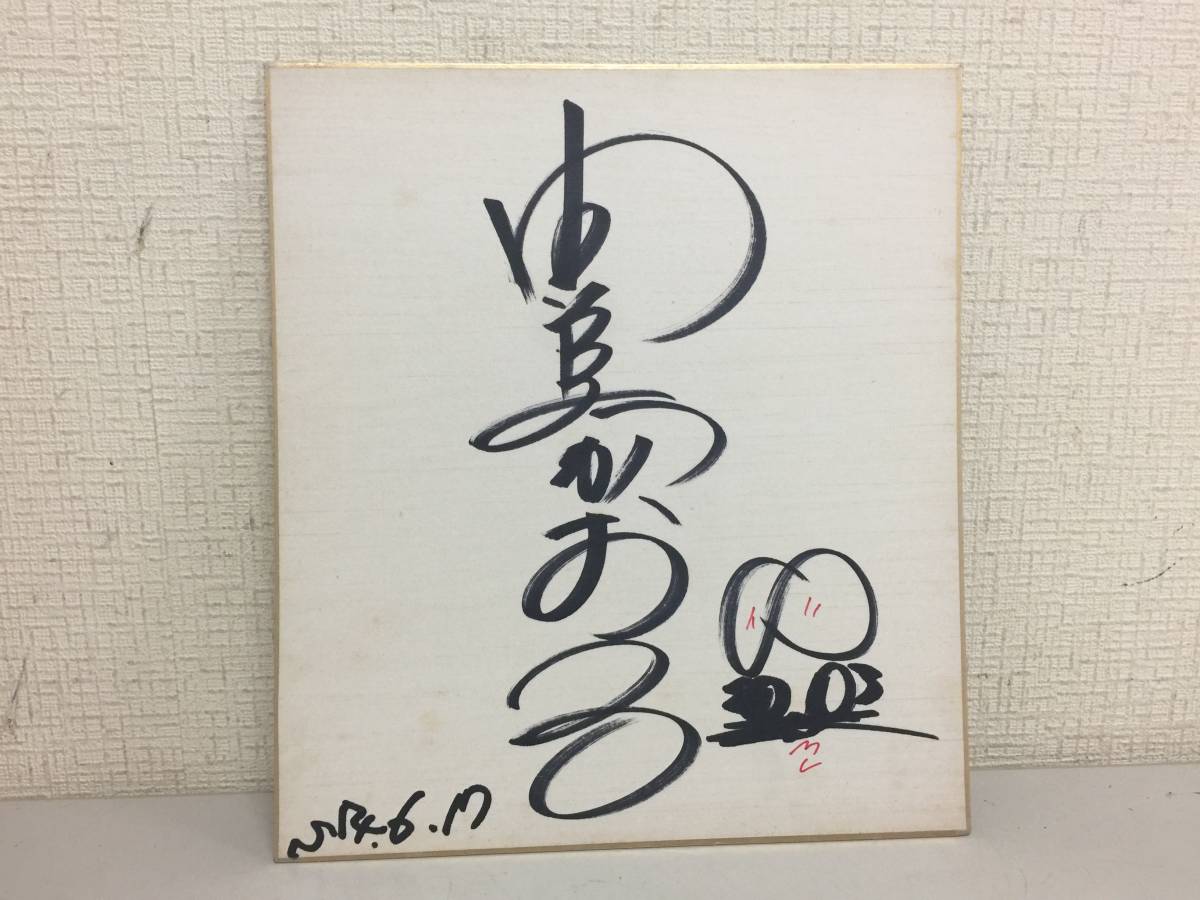 由美かおる
S54.6.17